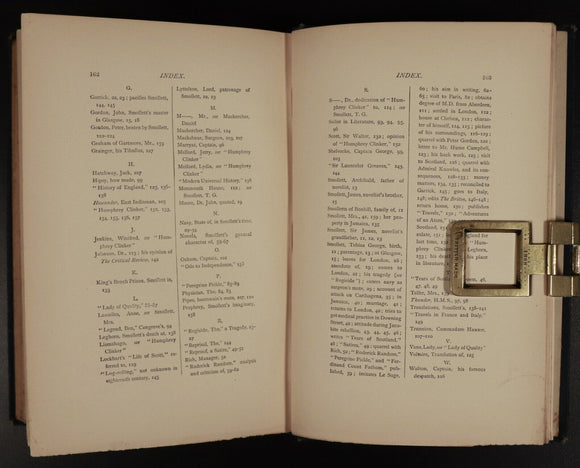 162
INDEX.
G.
Garrick, 22, 23; pacifies Smollett,
144, 145
Gordon, John, Smollett's master
in Glasgow, 15, 18
Gordon, Peter, beaten by Smollett,
Graham of Gartmore, Mr., 159
Grainger, his Tibullus, 127
H.
Hatchway, Jack, 107
Hazey, how made, 99
"History of England," 125, 136-
138
Hoxcaster, East Indiaman, 105
"Humphry Clinker," 152, 153,
154, 155, 156, 157
J.
Jenkins, Winifred, or "Humphry
Clinker"
Johnson, Dr., 113; his opinion of
The Critical Review, 142
K.
King's Bench Prison, Smollett in,
L.
"Lady of Quality," 86-87
Lascelles, Anne, or Smollett,
Mrs.
"Legend, Ben," Congreve's, 99
Leghorn, Smollett's death at, 158
Lismahago, or "Humphry
Clinker"
Lockhart's "Life of Scott," re-
ferred to, 129
"Log-rolling," not unknown in
eighteenth century, 143
Lyttelton, Lord, patronage of
Smollett, 22, 23
M.
M——, Mr., or Mackercher,
Daniel
Mackercher, Daniel, 124
Mackshane, Surgeon, 105, 107
Marryat, Captain, 96
Melford, Jerry, or "Humphry
Clinker"
Melford, Lydia, or "Humphry
Clinker"
"Modern Universal History," 138
Monmouth House, or
Smollett, T. G.
Moore, Dr. John, quoted, 19
N.
Navy, State of, in Smollett's time,
Novels, Smollett's general
character of,
O.
Oakum, Captain, 102
"Ode to Independence," 136
P.
"Peregrine Pickle," 85-89
Physician, The, 84, 85
Pipes, boatswain's mate, 107
Prophecy, Smollett's imaginary,
R.
"Regicide, The," a Tragedy,
"Reprisal, The," 144
"Reproof, a Satire," 49-51
Rich, Manager, 51
"Roderick Random," analysis
and criticism of, 59-62
INDEX.
163
S.
S——, Dr., dedication of "Hum-
phry Clinker" to, or
Smollett, T. G.
Sailor in Literature, 93, 94, 95,
96
Scott, Sir Walter, 132; opinion of
"Humphry Clinker," 152
Shelvocke, Captain George, 99,
103
"Sir Launcelot Greaves," 143,
144
Smollett, Archibald, father of
novelist, 13
Smollett, James, novelist's brother,
13
Smolletts of Bonhill, family of, 12
Smollett, Mrs., 41, 159; her pro-
perty in Jamaica, 133
Smollett, Sir James, novelist's
grandfather, 11, 12, 13
Smollett, Tobias George, birth,
12; parentage, 13; at Glasgow,
15; leaves for London,
members of, 19; comes to
London, 21; his tragedy (or
"Regicide"); enters navy as
surgeon's mate, 25; account of
attack on Carthagena, 35; in
Jamaica, 40; marriage,
41; returns to London,
get medical practice in Downing
Street, 42; attitude during Jaco-
bite rebellion, 43, 44, 45, 46;
writes "Tears of Scotland,"
46; "Satires," 49; quarrel with
Rich, 51; "Roderick Random,"
"Peregrine Pickle," and "Fer-
dinand Count Fathom," pub-
lished, 59; imitates Le Sage,
60; his aim in writing, 62-
65; visit to Paris, 82; obtains
degree of M.D. from Aberdeen,
settled in London,
house at Chelsea, 112; charac-
ter of himself, 114, 115; picture
of his surroundings, 116-119;
quarrel with Peter Gordon,
letter to Mr. Hume Campbell,
123; his hack work, 125; visit
to Scotland, quarrel with
Admiral Knowles, and its con-
sequences, 128-133; money
matters, 134, 135; reconciled to
Garrick, 145; goes to Italy,
edits The Briton,
return home, publishes
"Travels," "Adventures
of an Atom,"
Scotland,
England for
last time,
"Hum-
phry Clinker,"
Leghorn,
his death, his place
in literature,
T.
"Tears of Scotland," 46,
47, 48, 49
Telfer, Mrs.,
Thunder, H.M.S., 97, 98
Translations, Smollett's, 138-141
"Travels in France and Italy,"
Trunnion, Commodore Hawser,
107-110
V.
Vane, Lady, or "Lady of Quality"
Voltaire, Translation of, 125
W.
Walton, Captain, his famous
despatch,